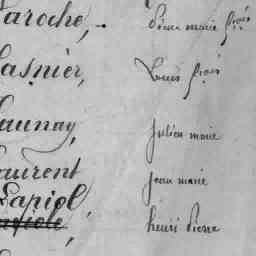 Laroche, Pierre marie fçois
Lasnier, Louis fçois
Launay, Julien marie
Laurent jean marie
Lapiol, henri Pierre